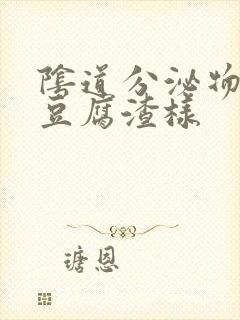 陰道分泌物
豆腐渣樣
瑭恩